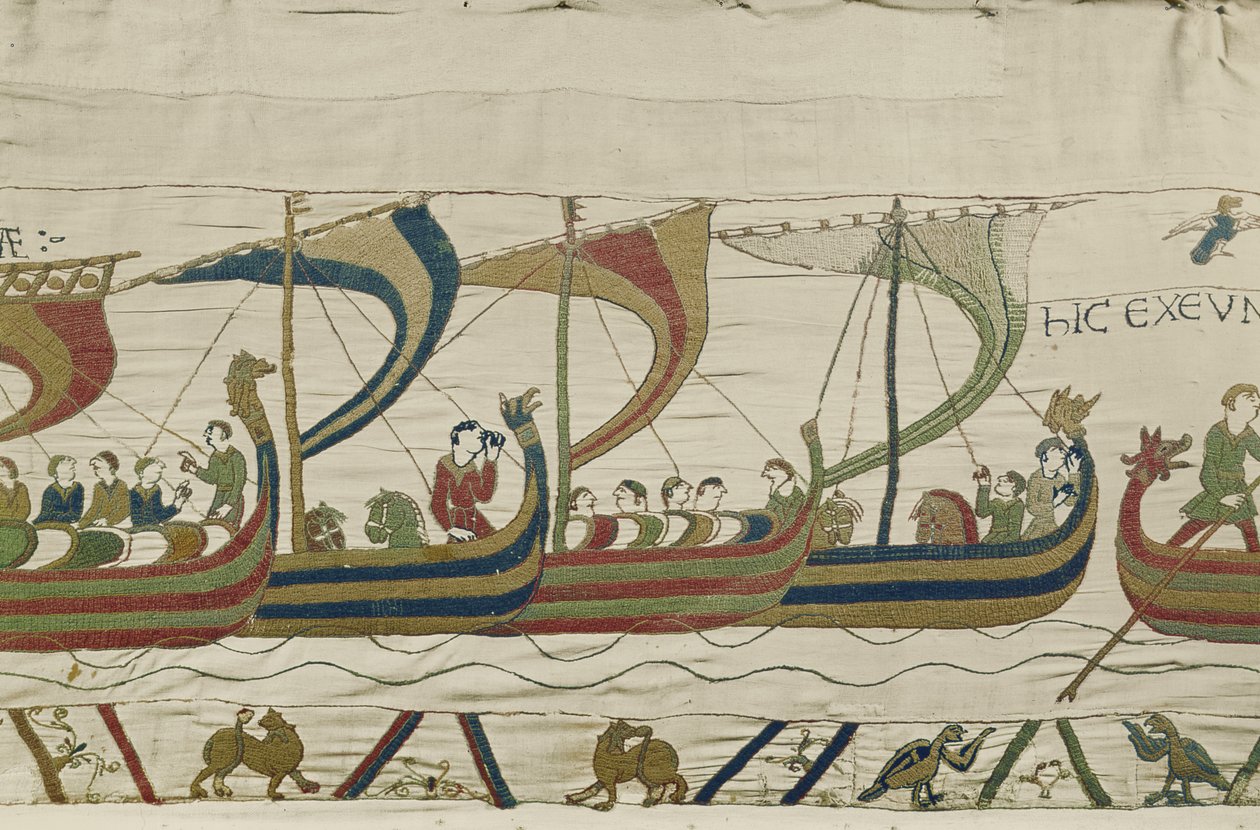 Æ :·
hIC EXEVN